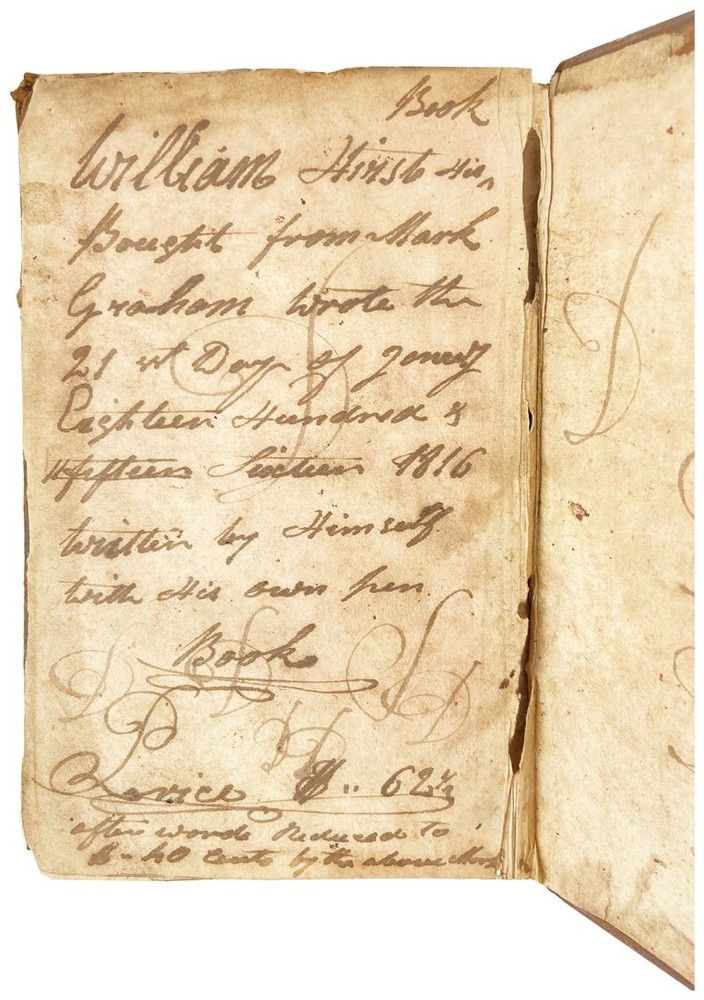 Book
William Hirst His
Bought from Mark
Graham wrote the
21 st Day of
Eighteen Hundred &
fifteen Sixteen 1816
written by Himself
with His own pen
Book
Price $ .. 62 1/2
after words Reduced to
$ - 40 Cents by the above